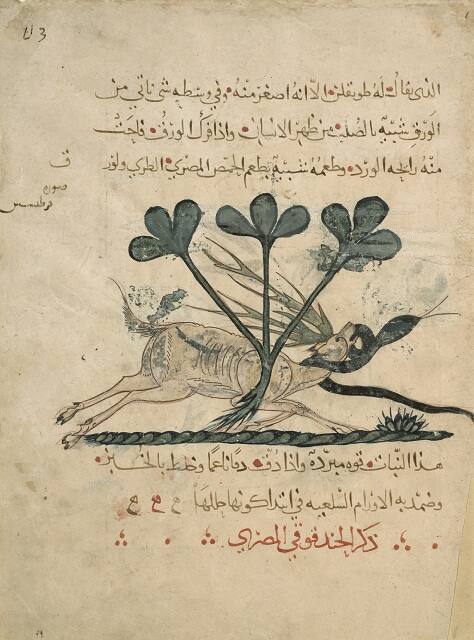 الذي يقال له طوبقلن الا انه اصغر منه وفي وسطه شي ناتي من
الورق شبيه بالصلب من ظهر الانسان واذا فرك الورق فاحت
منه رايحة الورد وطعمه شبيه بطعم الحمص المصري الطري ولون
ف
صوره
هذا النبات قوه مبرده واذا دق دقا ناعما وخلط بالخبز
وضمد به الاورام البلغميه في ابتدا كونها حللها
ذكر الحندقوقي المصري